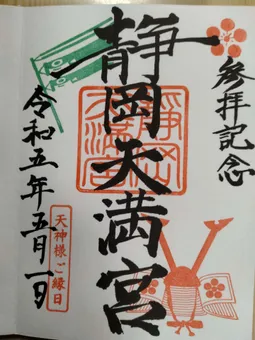 参拝記念
静岡天満宮
静岡天満宮
天神様ご縁日
令和五年五月一日